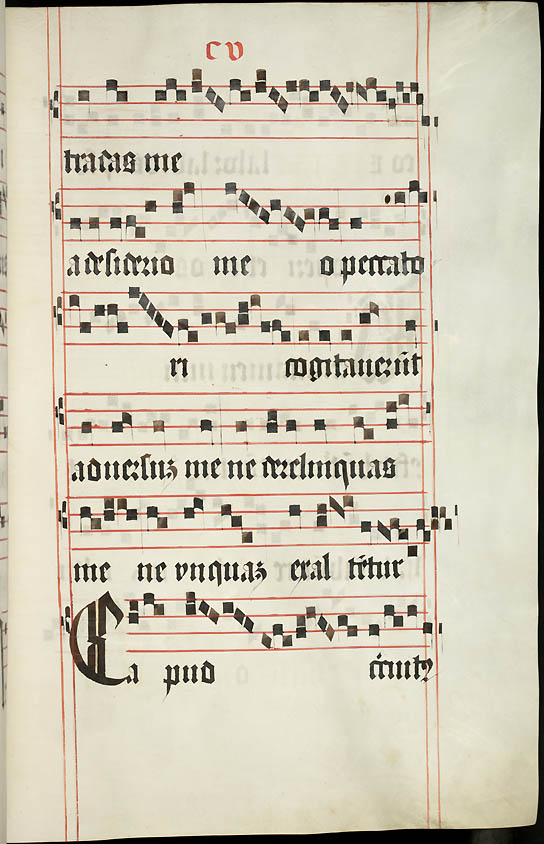 cv
tradas me
a desiderio me o peccato
ri cogitaverūt
adversuȝ me ne derelinquas
me ne vnquaȝ exal tētur
Ca pud